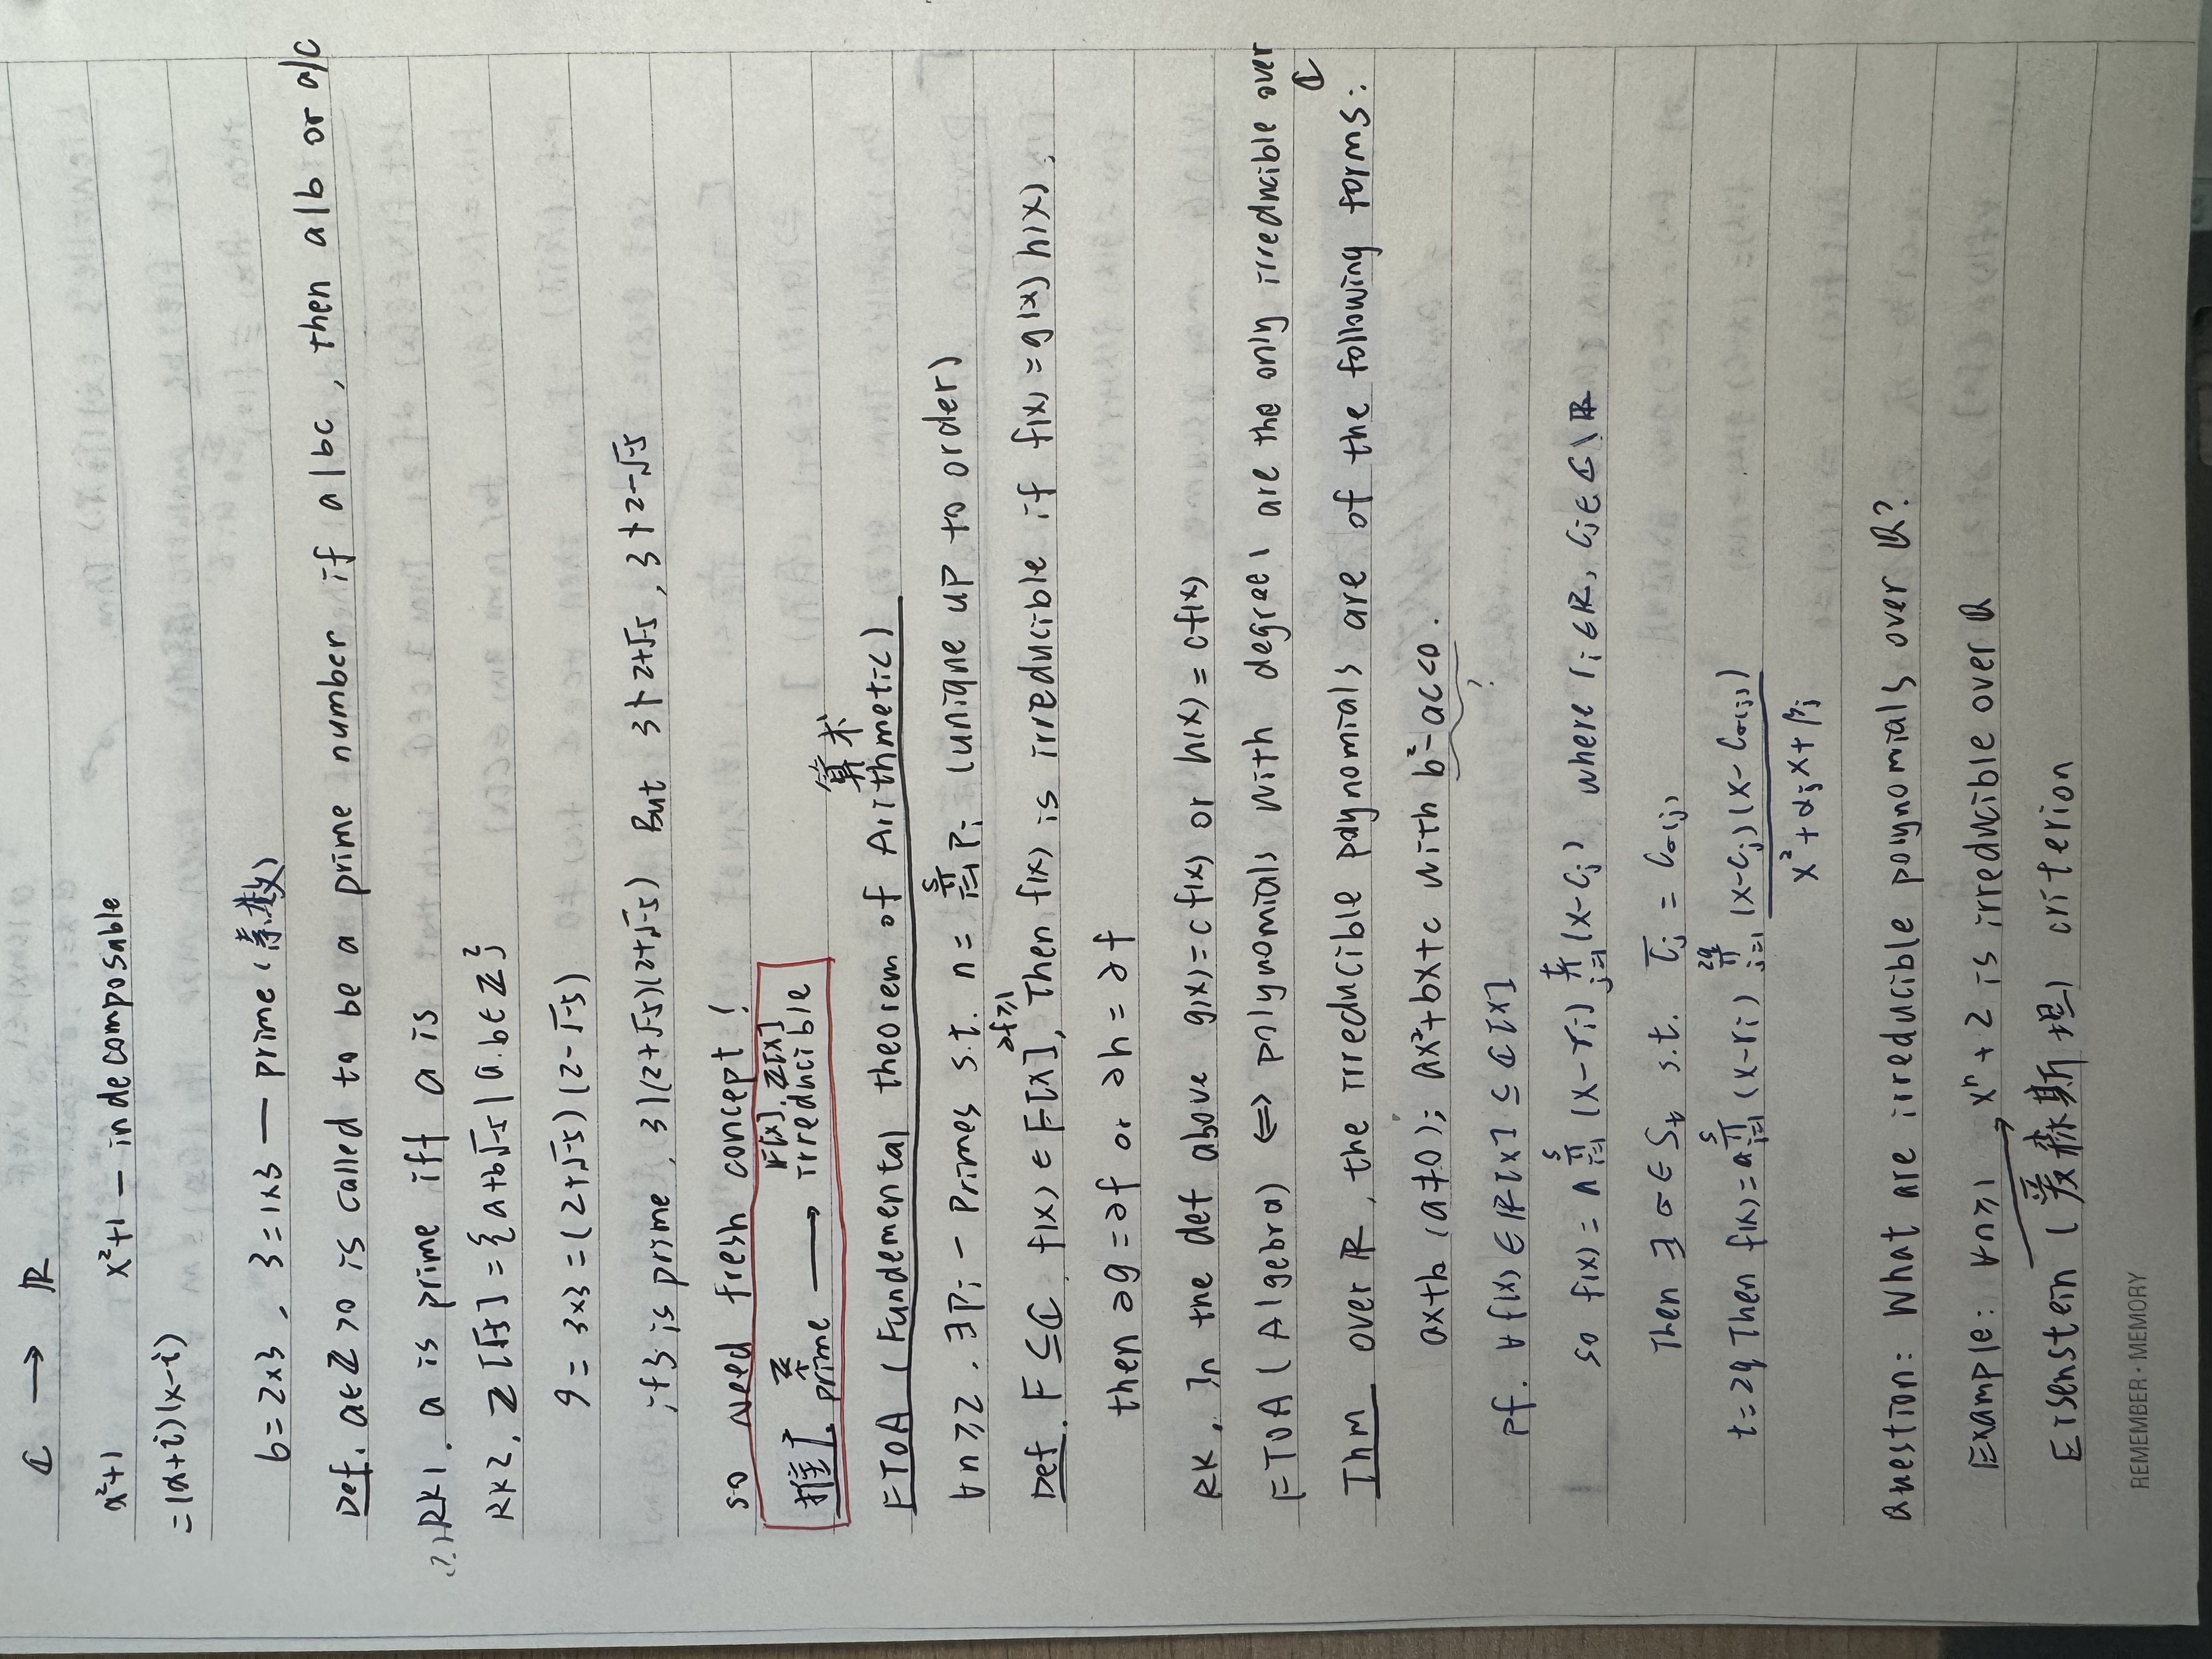 ℂ → ℝ
x²+1 x²+1 — indecomposable
=(x+i)(x-i)
6=2×3 , 3=1×3 — prime (素数)
Def. a∈ℤ>0 is called to be a prime number if a|bc , then a|b or a|c
RK1. a is prime iff a is
RK2. ℤ[√-5]={a+b√-5 | a.b∈ℤ}
9= 3×3 =(2+√-5)(2-√-5)
if 3 is prime , 3|(2+√-5)(2+√-5) But 3∤2+√-5 , 3∤2-√-5
so need fresh concept !
ℤ F[x], ℤ[x]
推广 prime → irreducible
算术
FTOA (Fundemental theorem of Arithmetic)
∀n≥2 . ∃Pi - Primes s.t. n= ∏_{i=1}^{s} Pi (unique up to order)
∂f≥1
Def. F⊆ℂ f(x)∈F[x], Then f(x) is irreducible if f(x)=g(x)h(x),
then ∂g=∂f or ∂h=∂f
RK. In the def above g(x)=cf(x) or h(x)=cf(x)
FTOA (Algebra) ⇔ polynomials with degree 1 are the only irreducible over ℂ
Thm over ℝ, the irreducible polynomials are of the following forms:
ax+b (a≠0); ax²+bx+c with b²-ac<0.
?
pf. ∀f(x)∈ℝ[x]⊆ℂ[x]
so f(x)= a ∏_{i=1}^{s} (x-ri) ∏_{j=1}^{t} (x-Cj) where ri∈ℝ, Cj∈ℂ\ℝ
Then ∃σ∈St s.t. C̄j = Cσ(j)
t=2q Then f(x)=a ∏_{i=1}^{s} (x-ri) ∏_{j=1}^{2q} (x-Cj)(x-Cσ(j))
x²+αjx+βj
Question: What are irreducible polynomials over ℚ?
Example: ∀n≥1 xⁿ+2 is irreducible over ℚ
Eisenstein (爱森斯坦) criterion
REMEMBER · MEMORY